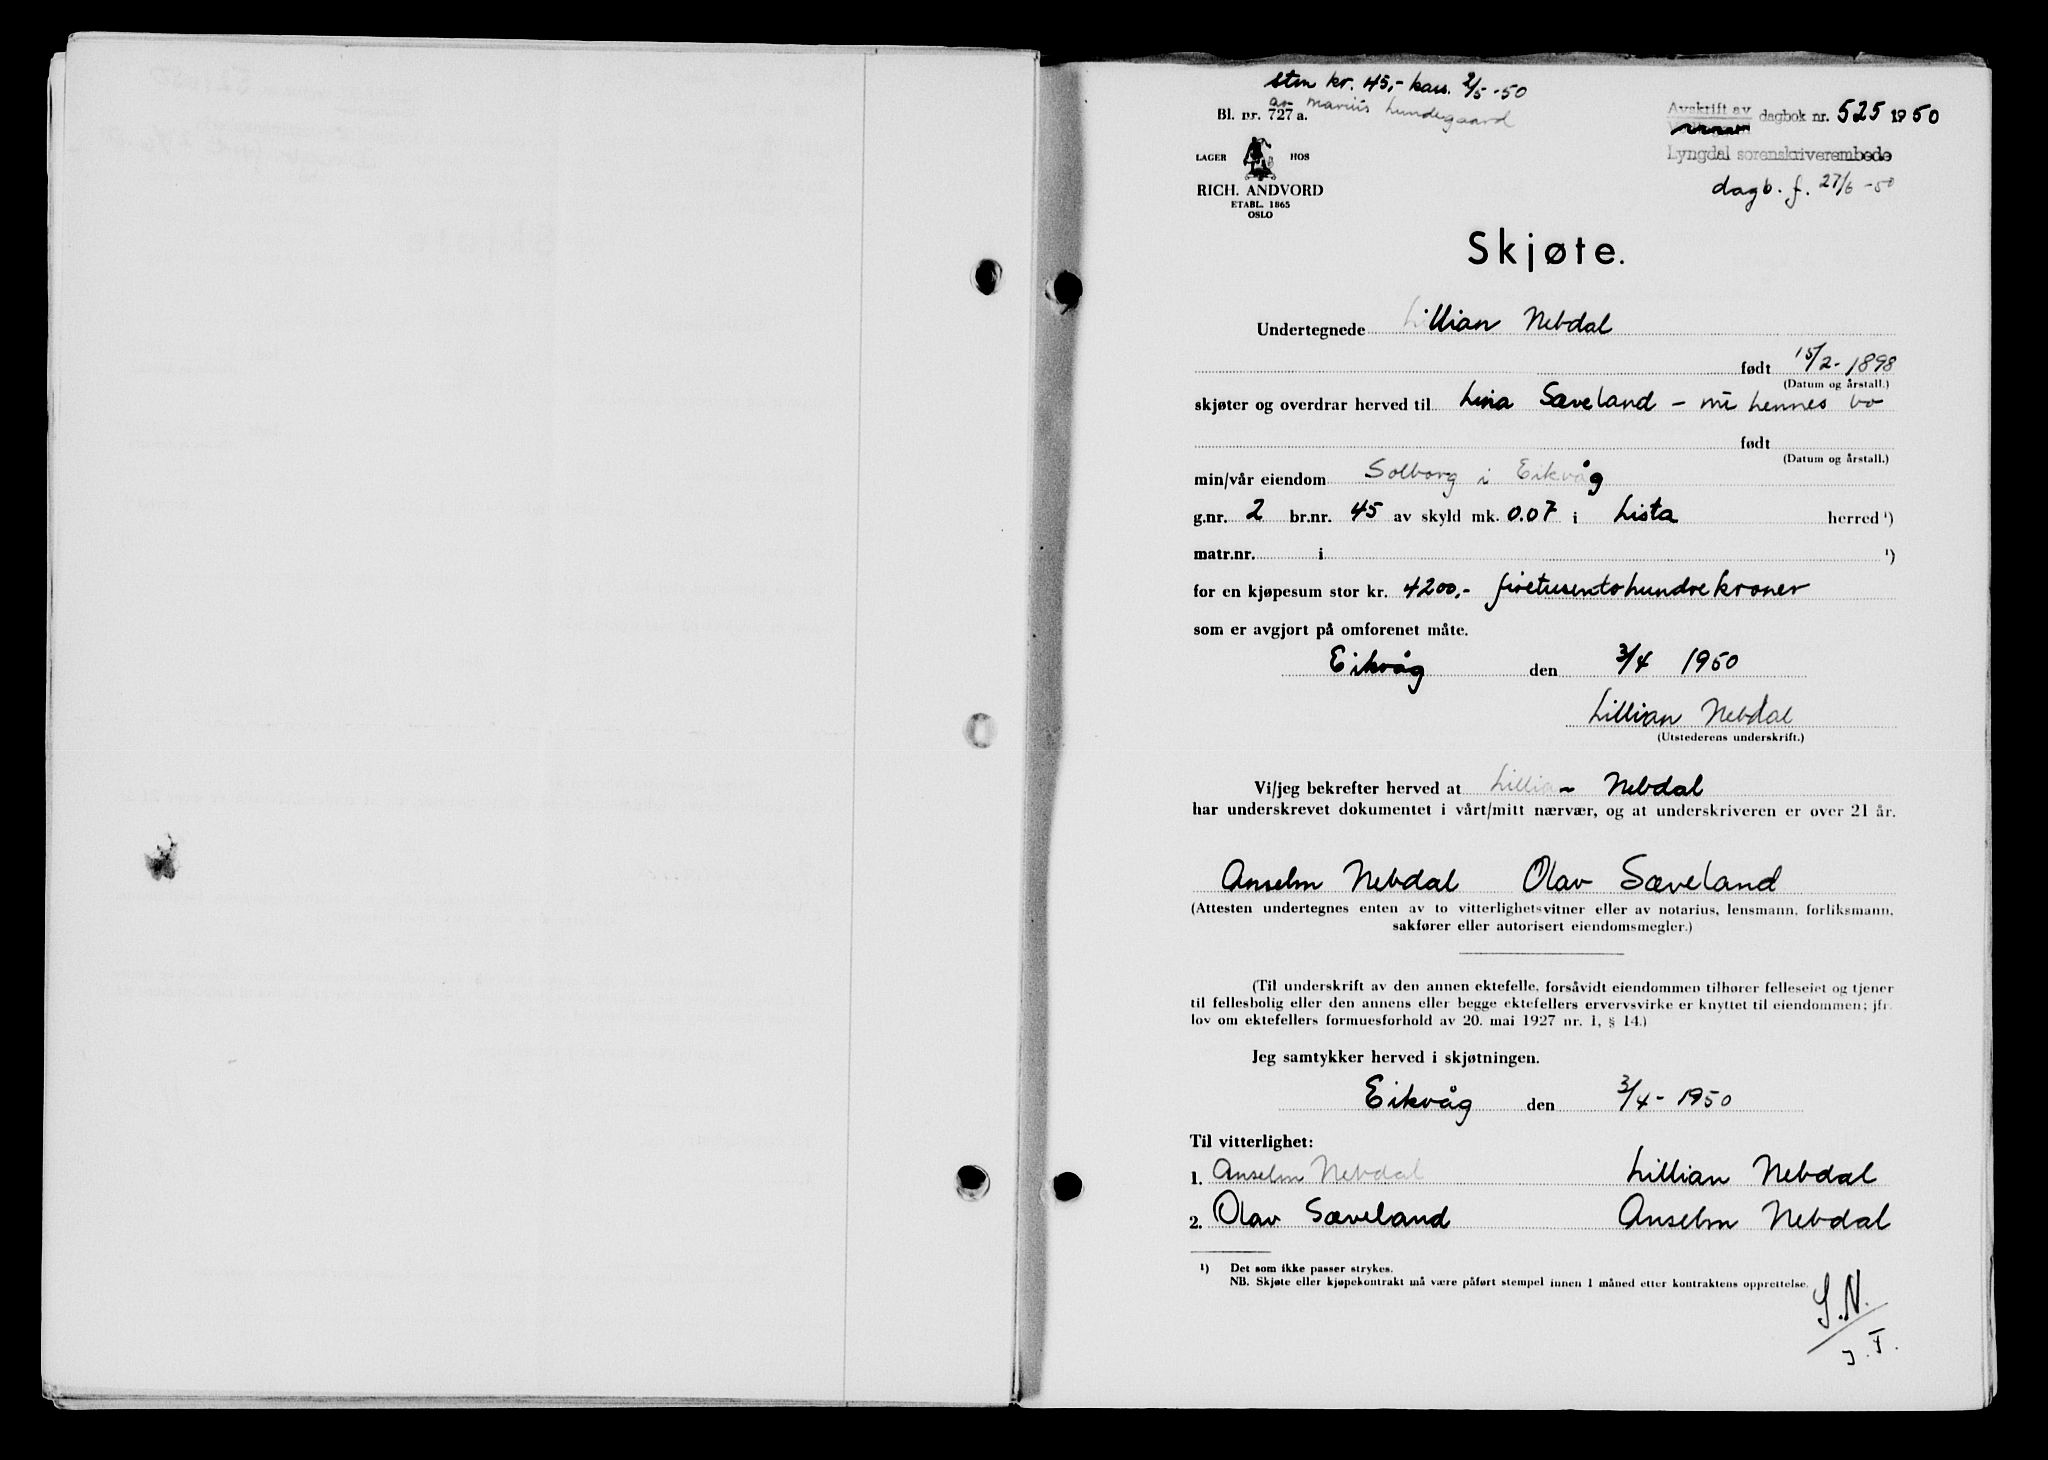 stem kr. 45,- kass. 2/5-50
av Marius Lundegaard
Bl. nr. 727 a.
Avskrift av dagbok nr. 525 1950
Lyngdal sorenskriverembede
dagb. f. 27/6-50
LAGER HOS
RICH. ANDVORD
ETABL. 1865
OSLO
Skjøte.
Undertegnede Lillian Nebdal
født 15/2-1898
(Datum og årstall.)
skjøter og overdrar herved til Lina Sæveland - nu hennes bo
født
(Datum og årstall.)
min/vår eiendom Solborg i Eikvåg
g.nr. 2 br.nr. 45 av skyld mk. 0.07 i Lista herred ¹)
matr.nr. i ¹)
for en kjøpesum stor kr. 4200,- firetusentohundrekroner
som er avgjort på omforenet måte.
Eikvåg den 3/4 1950
Lillian Nebdal
(Utstederens underskrift.)
Vi/jeg bekrefter herved at Lillian Nebdal
har underskrevet dokumentet i vårt/mitt nærvær, og at underskriveren er over 21 år.
Anselm Nebdal Olav Sæveland
(Attesten undertegnes enten av to vitterlighetsvitner eller av notarius, lensmann, forliksmann,
sakfører eller autorisert eiendomsmegler.)
(Til underskrift av den annen ektefelle, forsåvidt eiendommen tilhører felleseiet og tjener
til fellesbolig eller den annens eller begge ektefellers ervervsvirke er knyttet til eiendommen; jfr.
lov om ektefellers formuesforhold av 20. mai 1927 nr. 1, § 14.)
Jeg samtykker herved i skjøtningen.
Eikvåg den 3/4-1950
Til vitterlighet:
1. Anselm Nebdal Lillian Nebdal
2. Olav Sæveland Anselm Nebdal
¹) Det som ikke passer strykes.
NB. Skjøte eller kjøpekontrakt må være påført stempel innen 1 måned etter kontraktens opprettelse.
S.N.
J.T.